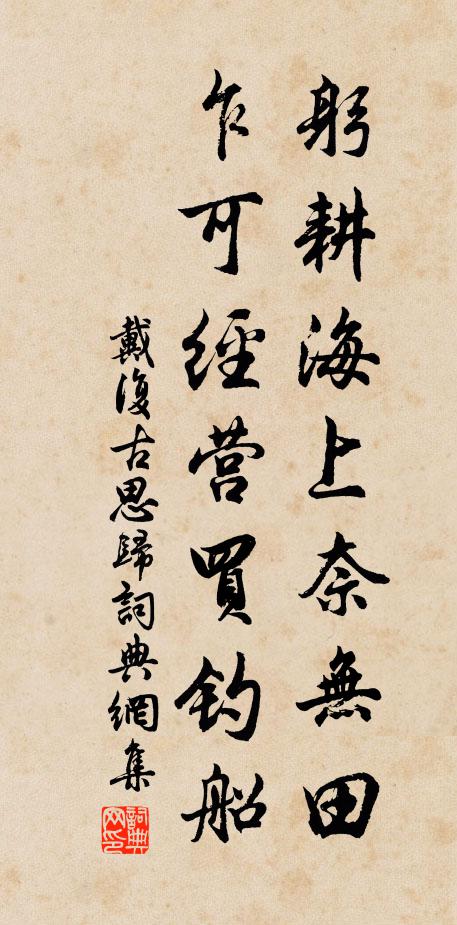 躬耕海上奈無田
乍可經营買釣船
戴復古思歸詞典網集
詞典网印